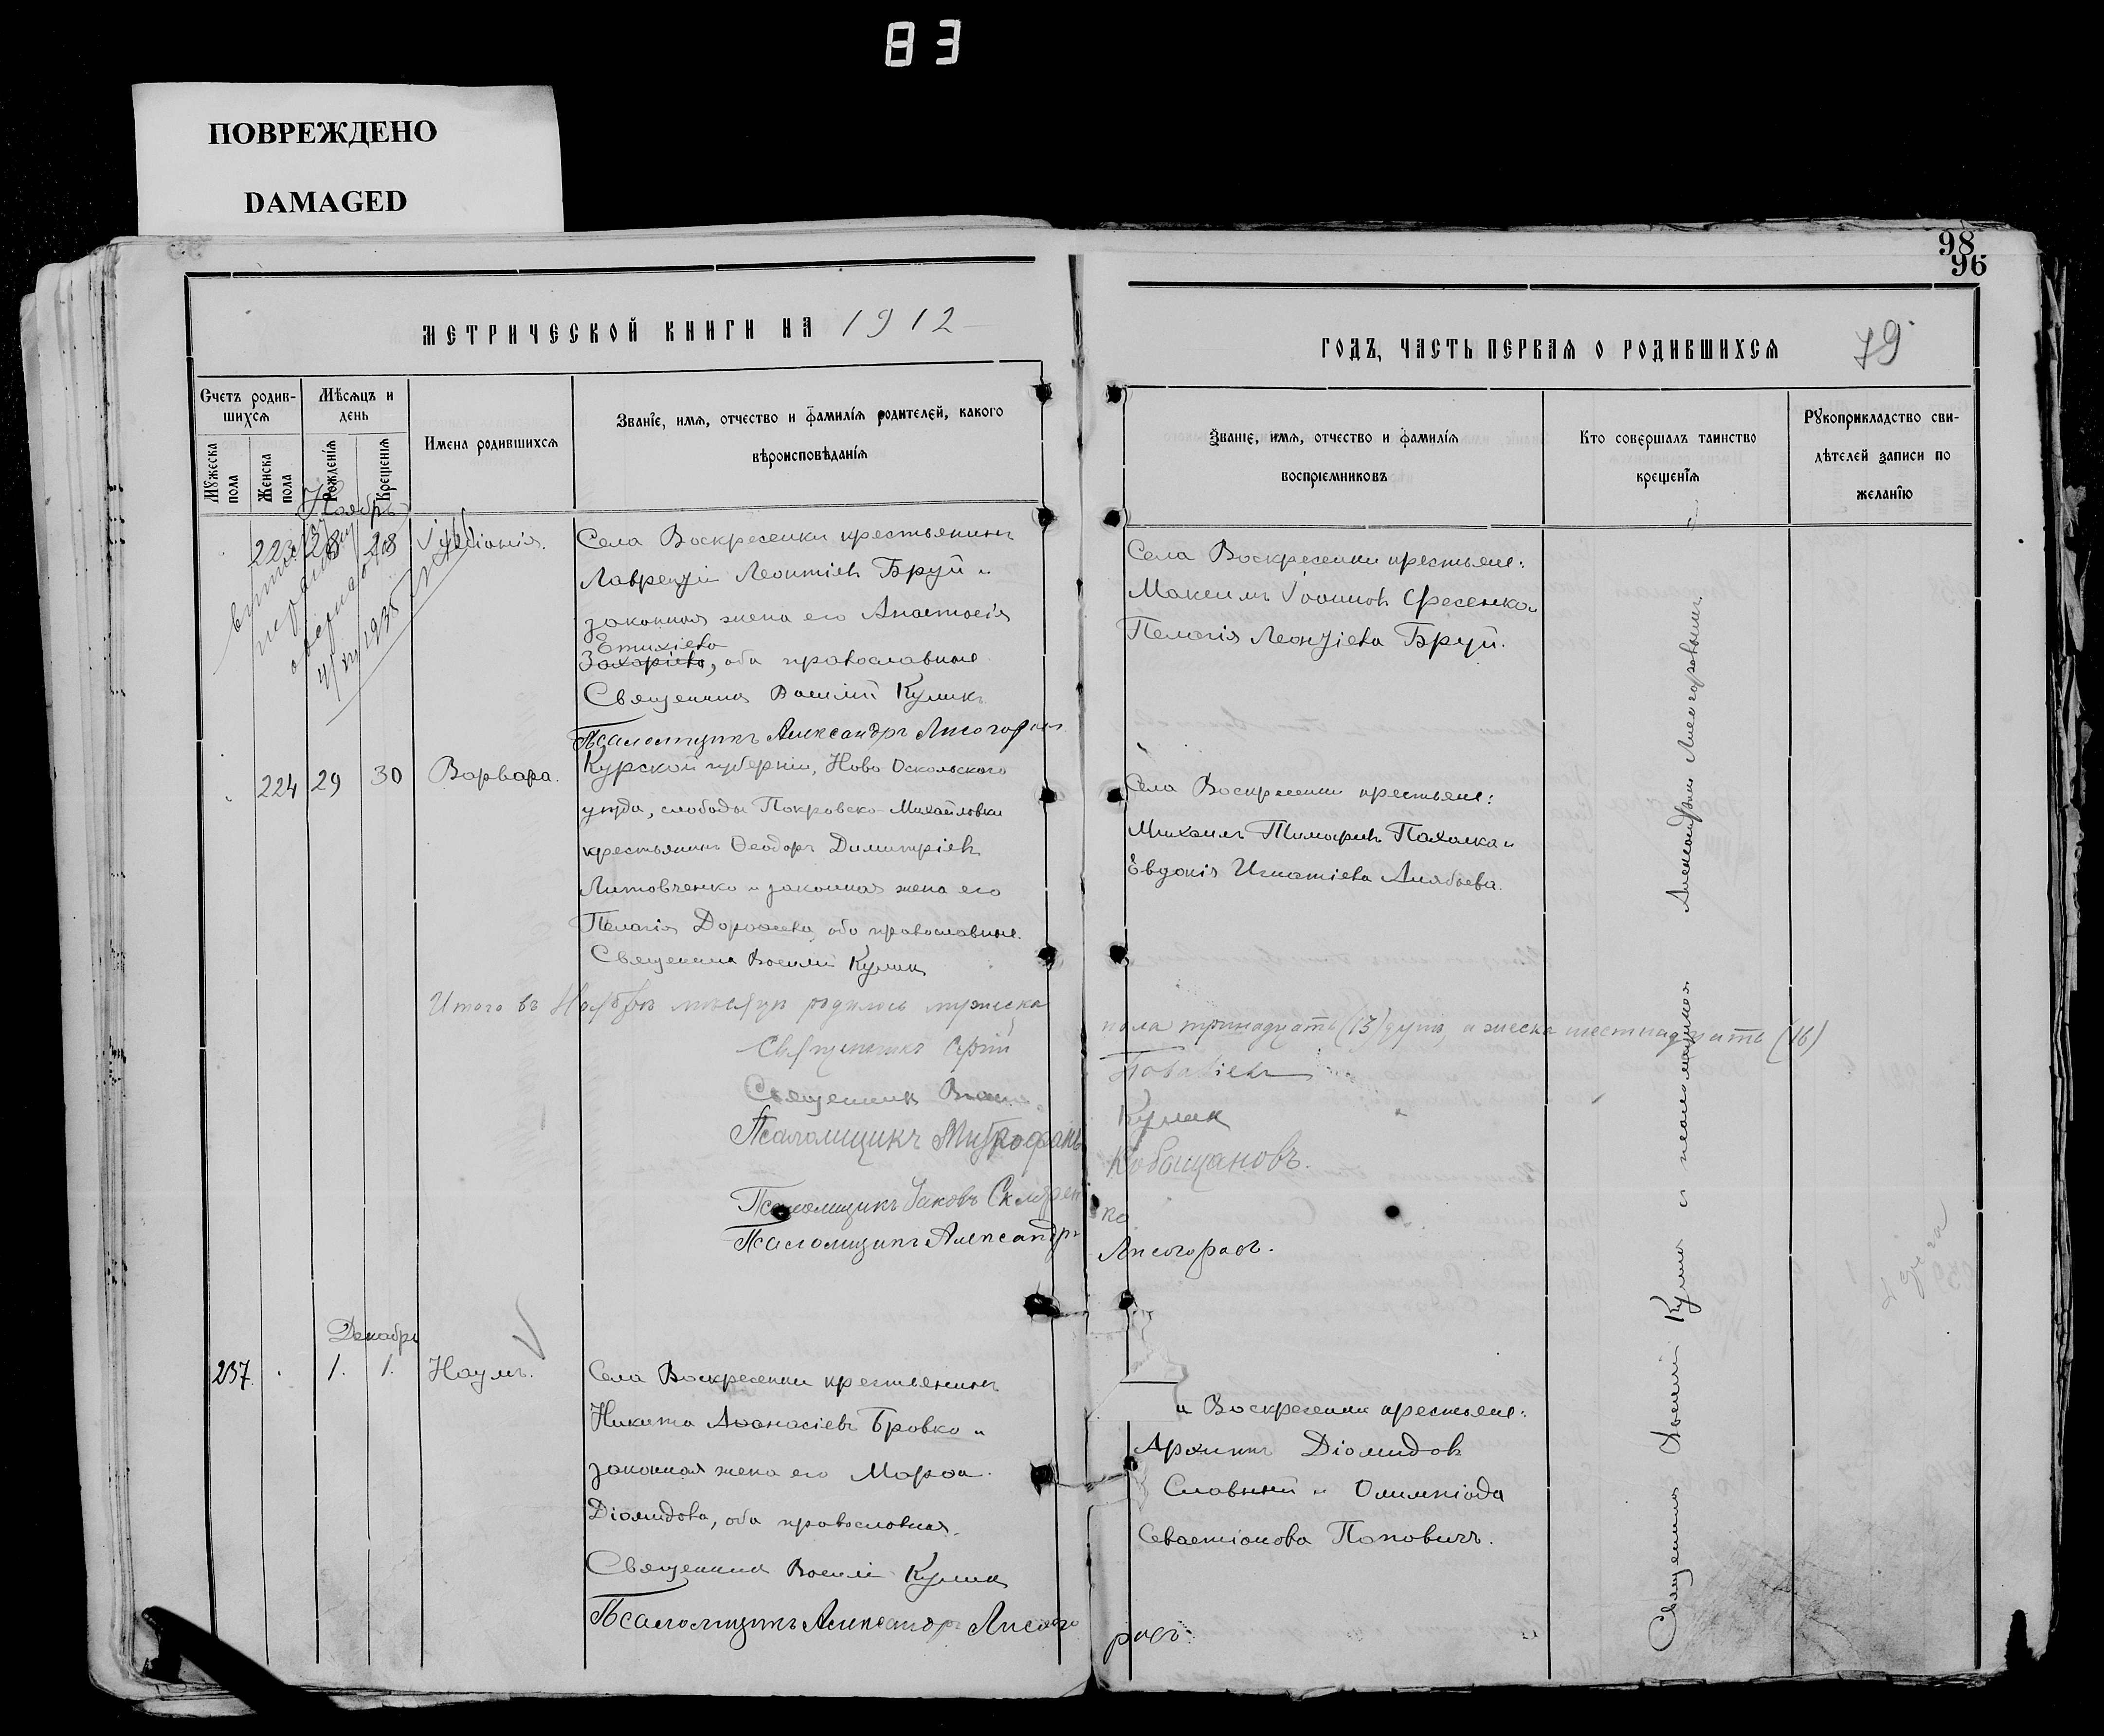 83
ПОВРЕЖДЕНО
DAMAGED
98
96
МЕТРИЧЕСКОЙ КНИГИ НА 1912
Счетъ родив-
шихся
Мѣсяцъ и
день
Мужеска пола
Женска пола
Рожденія
Крещенія
Имена родившихся
Званіе, имя, отчество и фамилія родителей, какого
вѣроисповѣданія
Ноябрь
223 28 28
Села Воскресенки крестьянинъ
Лаврентій Леонтіевъ Бруй и
законная жена его Анастасія
Евтихіева
Захаріева, оба православные
Священникъ Василій Куликъ
Псаломщикъ Александръ Лисогоровъ
1935
224 29 30 Варвара.
Курской губерніи, Ново Оскольскаго
уѣзда, слободы Покровско-Михайловки
крестьянинъ Ѳеодоръ Димитріевъ
Литовченко и законная жена его
Пелагія Дороѳеева, оба православные.
Священникъ Василій Куликъ
Итого въ Ноябрѣ мѣсяцѣ родилось мужеска
Священникъ Сергій
Священникъ Васил
Псаломщикъ Митрофанъ
Псаломщикъ Іаковъ Склярен
Псаломщикъ Александръ
Декабрь
237. 1. 1. Наумъ.
Села Воскресенки крестьянинъ
Никита Аѳанасіевъ Бровко и
законная жена его Марѳа
Діомидова, оба православные.
Священникъ Василій Куликъ
Псаломщикъ Александръ Лисого
ГОДЪ, ЧАСТЬ ПЕРВАЯ О РОДИВШИХСЯ 79
Званіе, имя, отчество и фамилія
воспріемниковъ
Кто совершалъ таинство
крещенія
Рукоприкладство сви-
дѣтелей записи по
желанію
Села Воскресенки крестьяне:
Максимъ Іоанновъ Фесенко и
Пелагія Леонтіева Бруй.
Села Воскресенки крестьяне:
Михаилъ Тимоѳіевъ Пахалка и
Евдокія Игнатіева Алябьева.
пола тринадцать (13) душъ, а женска шестнадцать (16)
Куликъ
Кобыщановъ.
ко.
Лисогоровъ.
и Воскресенки крестьяне:
Архиппъ Діомидовъ
Славный и Олимпіада
Севастіанова Поповичъ.
ровъ.
Священникъ Василій Куликъ и псаломщикъ Александръ Лисогоровъ.